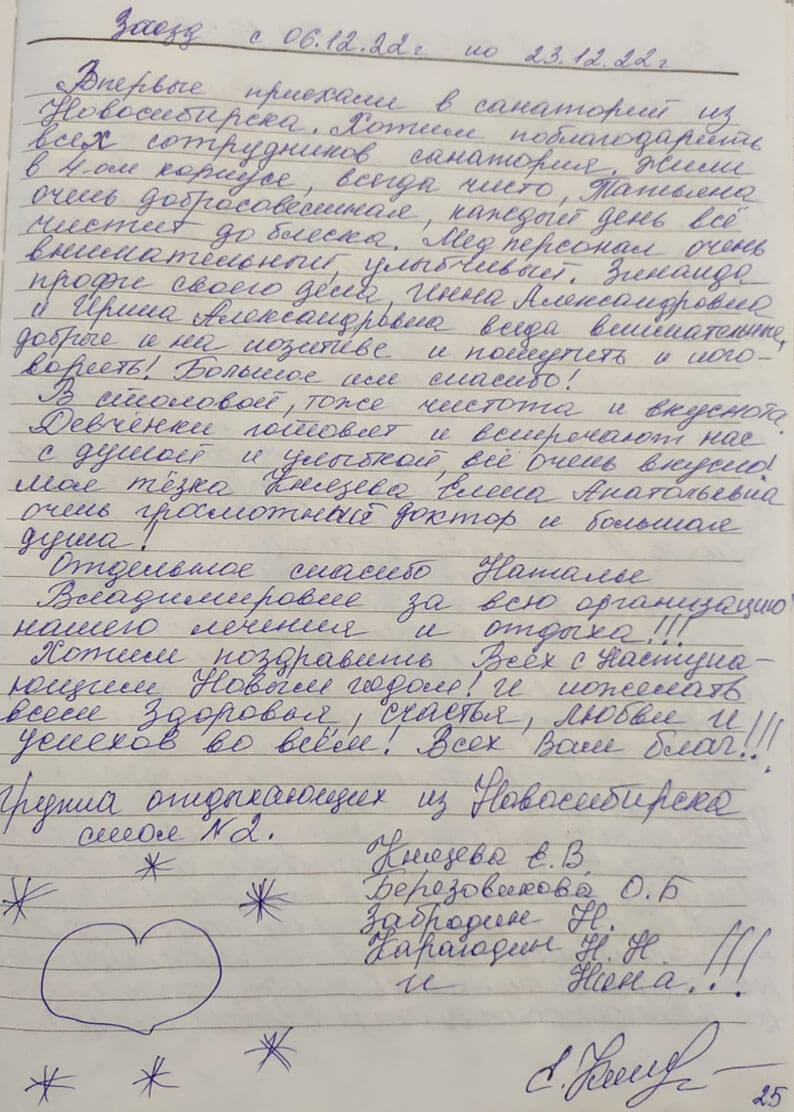 Заезд с 06.12.22г по 23.12.22г
Впервые приехали в санаторий из
Новосибирска. Хотим поблагодарить
всех сотрудников санатория. Жили
в 4-ом корпусе, всегда чисто, Татьяна
очень добросовесшная, каждый день всё
чистит до блеска. Мед персонал очень
внимательный, улыбчивый. Зинаида
профи своего дела, Инна Александровна
и Ирина Александровна всегда внимательные,
добрые и на позитиве и пошутить и пого-
ворить! Большое им спасибо!
В столовой, тоже чистота и вкуснота.
Девчёнки готовят и встречают нас
с душой и улыбкой, всё очень вкусно!
моя тёзка Князева Елена Анатольевна
очень грамотный доктор и большая
душа!
Отдельное спасибо Наталье
Владимировне за всю организацию
нашего лечения и отдыха!!!
Хотим поздравить Всех с Наступа-
ющим Новым годом! И пожелать
всем Здоровья, счастья, любви и
успехов во всём! Всех Вам благ!!!
группа отдыхающих из Новосибирска
стол N2.
Князева Е.В
Березовикова О.Б
Забродин Н.
Карагодин Н.Н.
и Нана.!!!
25